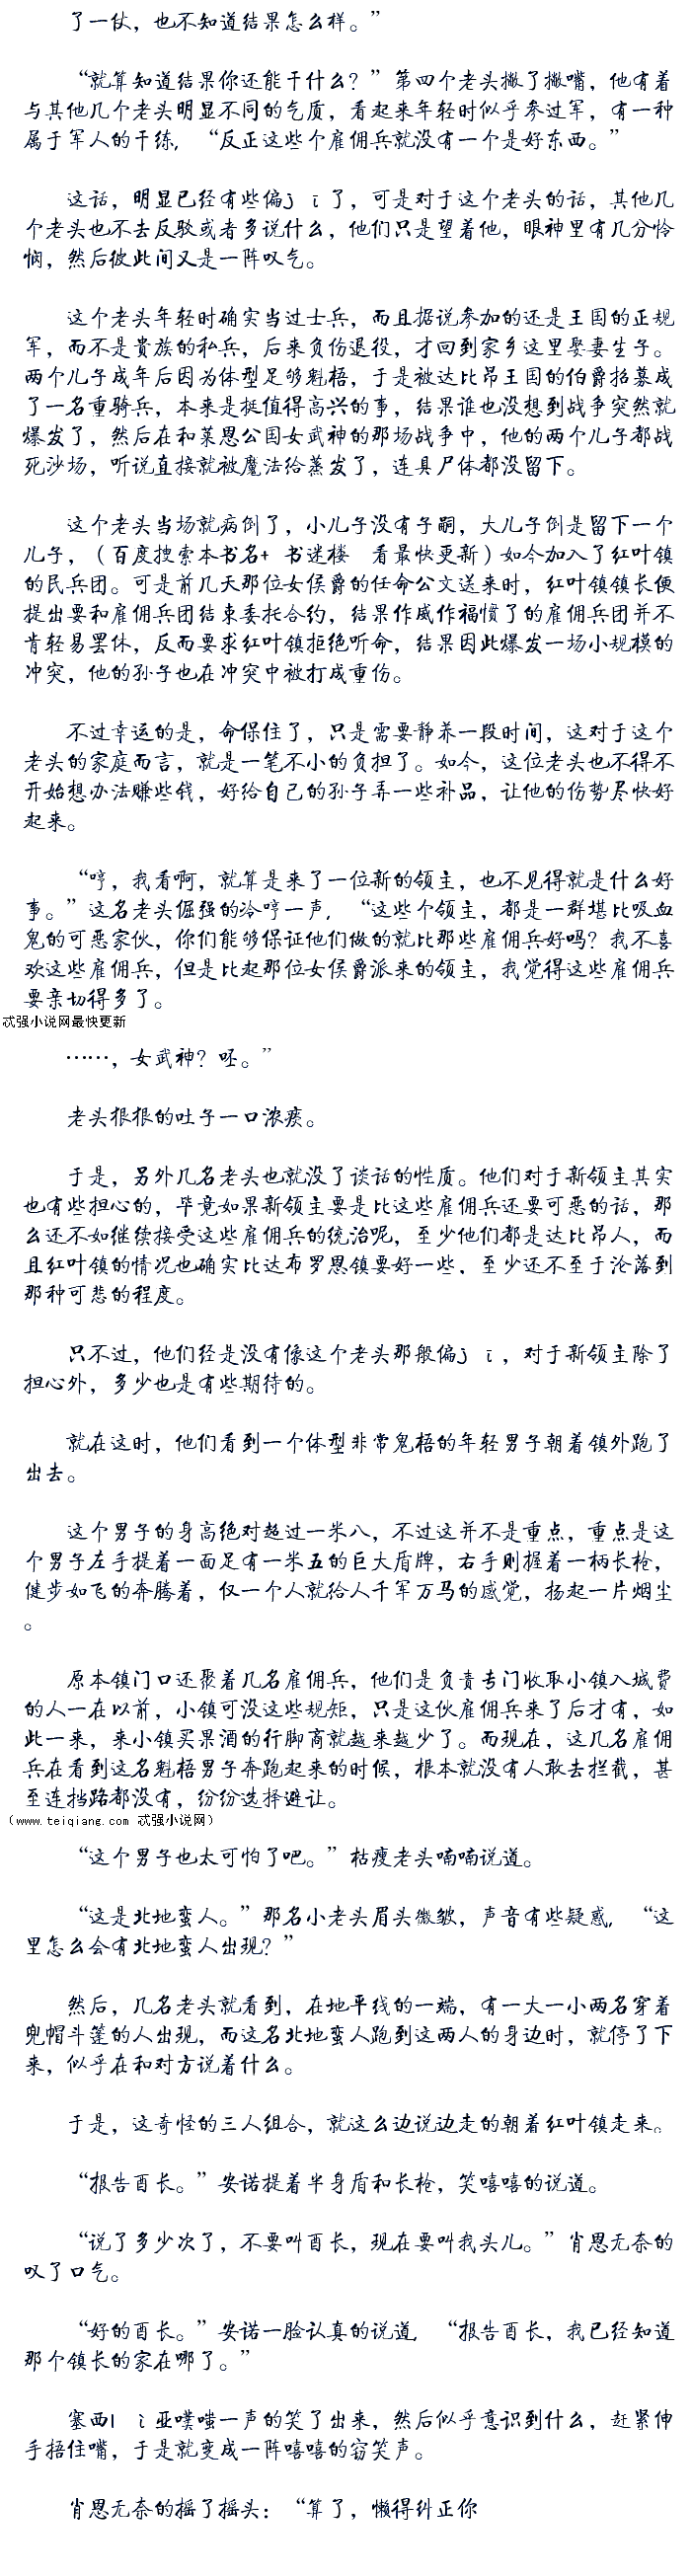 了一仗，也不知道结果怎么样。”
“就算知道结果你还能干什么？”第四个老头撇了撇嘴，他有着
与其他几个老头明显不同的气质，看起来年轻时似乎参过军，有一种
属于军人的干练，“反正这些个雇佣兵就没有一个是好东西。”
这话，明显已经有些偏jī了，可是对于这个老头的话，其他几
个老头也不去反驳或者多说什么，他们只是望着他，眼神里有几分怜
悯，然后彼此间又是一阵叹气。
这个老头年轻时确实当过士兵，而且据说参加的还是王国的正规
军，而不是贵族的私兵，后来负伤退役，才回到家乡这里娶妻生子。
两个儿子成年后因为体型足够魁梧，于是被达比昂王国的伯爵招募成
了一名重骑兵，本来是挺值得高兴的事，结果谁也没想到战争突然就
爆发了，然后在和莱恩公国女武神的那场战争中，他的两个儿子都战
死沙场，听说直接就被魔法给蒸发了，连具尸体都没留下。
这个老头当场就病倒了，小儿子没有子嗣，大儿子倒是留下一个
儿子，（百度搜索本书名+ 书迷楼 看最快更新）如今加入了红叶镇
的民兵团。可是前几天那位女侯爵的任命公文送来时，红叶镇镇长便
提出要和雇佣兵团结束委托合约，结果作威作福惯了的雇佣兵团并不
肯轻易罢休，反而要求红叶镇拒绝听命，结果因此爆发一场小规模的
冲突，他的孙子也在冲突中被打成重伤。
不过幸运的是，命保住了，只是需要静养一段时间，这对于这个
老头的家庭而言，就是一笔不小的负担了。如今，这位老头也不得不
开始想办法赚些钱，好给自己的孙子弄一些补品，让他的伤势尽快好
起来。
“哼，我看啊，就算是来了一位新的领主，也不见得就是什么好
事。”这名老头倔强的冷哼一声，“这些个领主，都是一群堪比吸血
鬼的可恶家伙，你们能够保证他们做的就比那些雇佣兵好吗？我不喜
欢这些雇佣兵，但是比起那位女侯爵派来的领主，我觉得这些雇佣兵
要亲切得多了。
忒强小说网最快更新
……，女武神？呸。”
老头狠狠的吐了一口浓痰。
于是，另外几名老头也就没了谈话的性质。他们对于新领主其实
也有些担心的，毕竟如果新领主要是比这些雇佣兵还要可恶的话，那
么还不如继续接受这些雇佣兵的统治呢，至少他们都是达比昂人，而
且红叶镇的情况也确实比达布罗恩镇要好一些，至少还不至于沦落到
那种可悲的程度。
只不过，他们经是没有像这个老头那般偏jī，对于新领主除了
担心外，多少也是有些期待的。
就在这时，他们看到一个体型非常鬼梧的年轻男子朝着镇外跑了
出去。
这个男子的身高绝对超过一米八，不过这并不是重点，重点是这
个男子左手提着一面足有一米五的巨大盾牌，右手则握着一柄长枪，
健步如飞的奔腾着，仅一个人就给人千军万马的感觉，扬起一片烟尘
。
原本镇门口还聚着几名雇佣兵，他们是负责专门收取小镇入城费
的人一在以前，小镇可没这些规矩，只是这伙雇佣兵来了后才有，如
此一来，来小镇买果酒的行脚商就越来越少了。而现在，这几名雇佣
兵在看到这名魁梧男子奔跑起来的时候，根本就没有人敢去拦截，甚
至连挡路都没有，纷纷选择避让。
（www.teiqiang.com 忒强小说网）
“这个男子也太可怕了吧。”枯瘦老头喃喃说道。
“这是北地蛮人。”那名小老头眉头微皱，声音有些疑惑，“这
里怎么会有北地蛮人出现？”
然后，几名老头就看到，在地平线的一端，有一大一小两名穿着
兜帽斗篷的人出现，而这名北地蛮人跑到这两人的身边时，就停了下
来，似乎在和对方说着什么。
于是，这奇怪的三人组合，就这么边说边走的朝着红叶镇走来。
“报告酋长。”安诺提着半身盾和长枪，笑嘻嘻的说道。
“说了多少次了，不要叫酋长，现在要叫我头儿。”肖恩无奈的
叹了口气。
“好的酋长。”安诺一脸认真的说道，“报告酋长，我已经知道
那个镇长的家在哪了。”
塞西lì亚噗嗤一声的笑了出来，然后似乎意识到什么，赶紧伸
手捂住嘴，于是就变成一阵嘻嘻的窃笑声。
肖恩无奈的摇了摇头：“算了，懒得纠正你